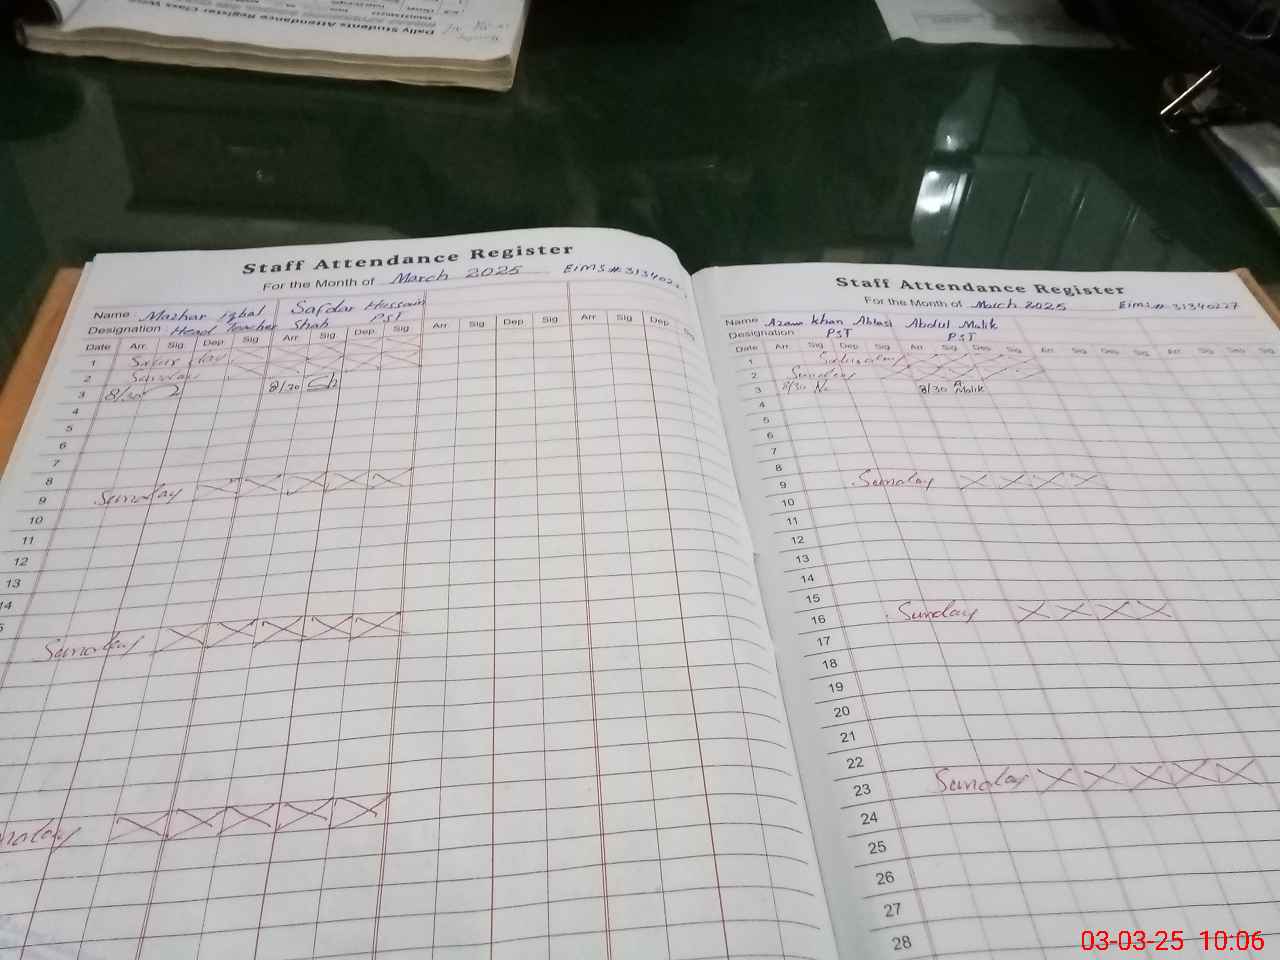 Daily Students Attendance Register Class Wise
Staff Attendance Register
For the Month of March 2025 EIMS #. 3134022
Name Mazhar Iqbal Safdar Hussain
Designation Head Teacher Shah PST
Date Arr. Sig Dep Sig Arr. Sig. Dep Sig Arr Sig Dep Sig Arr Sig Dep Sig
1 Saturday
2 Sunday
3 8/30 8/30 Sh
4
5
6
7
8
9 Sunday
10
11
12
13
14
Sunday
Staff Attendance Register
For the Month of March 2025 EIMS #. 31340227
Name Azam Khan Abbasi Abdul Malik
Designation PST PST
Date Arr. Sig Dep Sig Arr. Sig Dep Sig Arr Sig Dep Sig Arr. Sig Dep Sig
1 Saturday
2 Sunday
3 8/30 8/30 A. Malik
4
5
6
7
8
9 Sunday
10
11
12
13
14
15
16 Sunday
17
18
19
20
21
22
23 Sunday
24
25
26
27
28
03-03-25 10:06